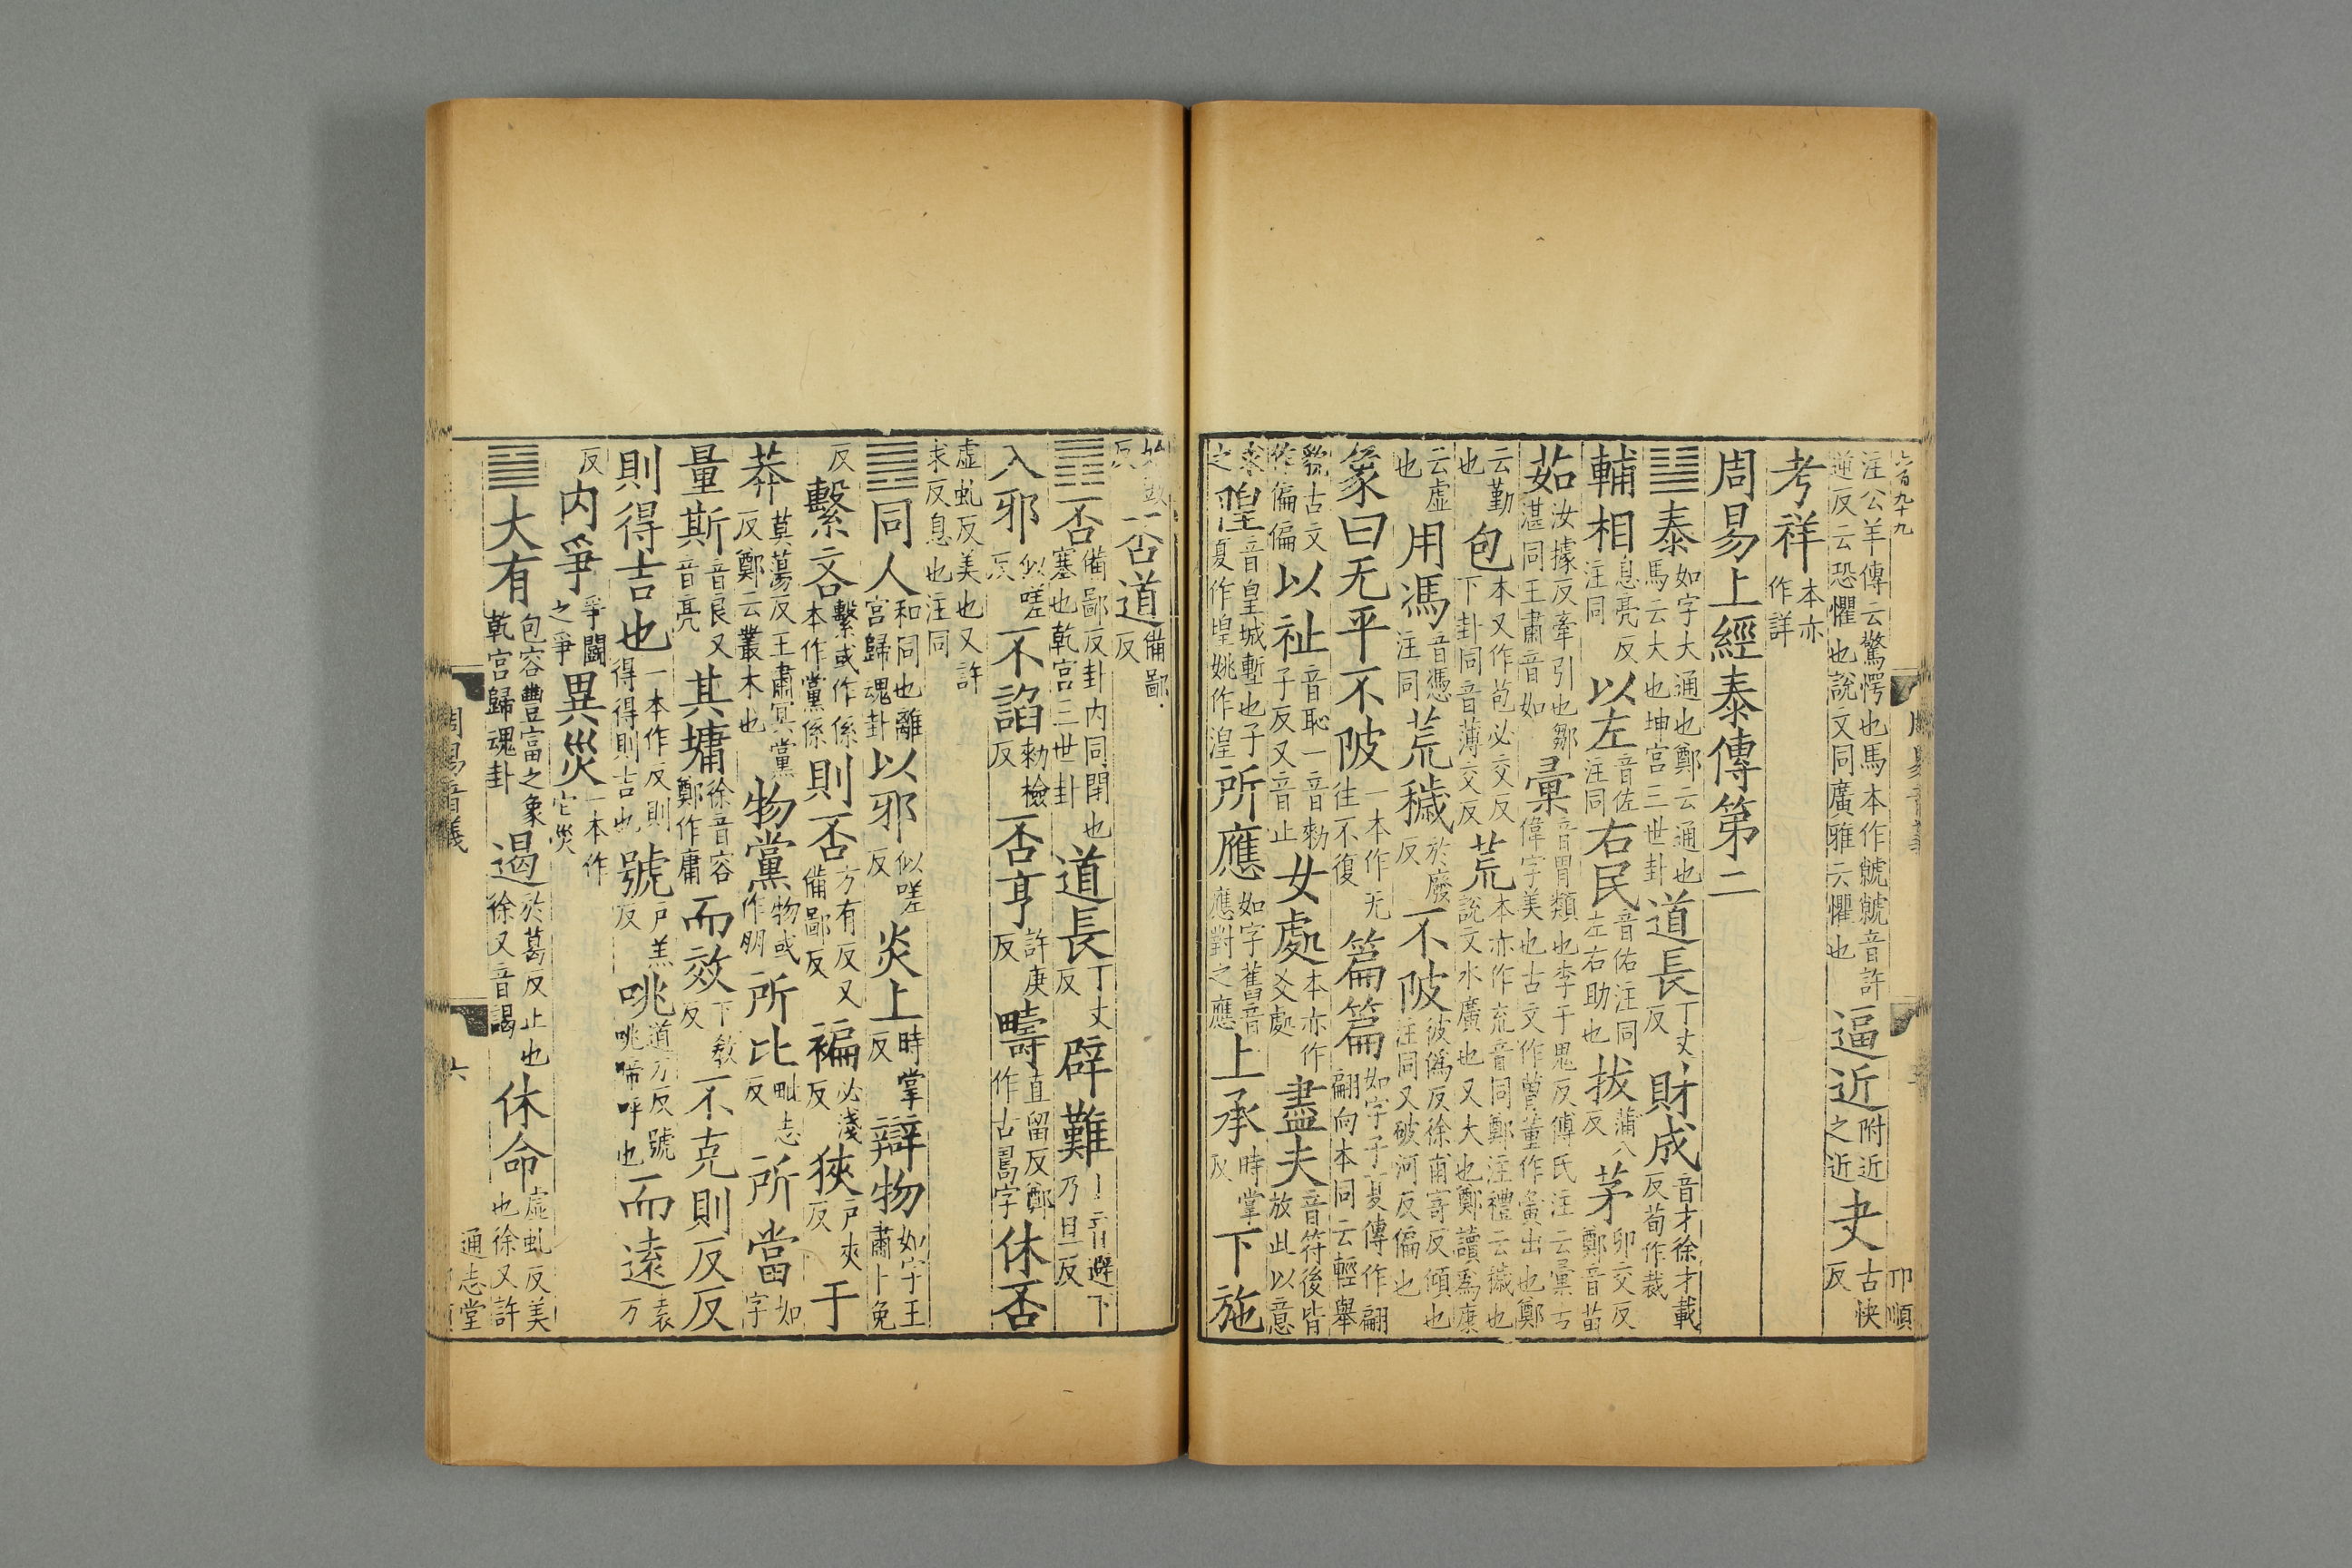 注公羊傳云驚愕也馬本作虩虩音許逆反云恐懼也說文同廣雅云懼也 逼近 附近之近 夬 古快反
考祥 本亦作詳
周易上經泰傳第二
䷊泰 如字大通也鄭云通也馬云大也坤宮三世卦 道長 丁丈反 財成 音才徐才載反荀作裁
輔相 息亮反注同 以左 音佐注同 右民 音佑注同左右助也 拔 蒲八反 茅 卯交反鄭音苗
茹 汝據反牽引也鄒湛同王肅音如 彙 音胃類也李于鬼反傅氏注云彙古偉字美也古文作曹董作夤出也鄭
云勤也 包 本又作苞必交反下卦同音薄交反 荒 本亦作巟音同鄭注禮云穢也說文水廣也又大也鄭讀爲康
云虛也 用馮 音憑注同 荒穢 於廢反 不陂 彼僞反徐甫寄反傾也注同又破河反偏也
象曰无平不陂 一本作无往不復 篇篇 如字子夏傳作翩翩向本同云輕舉
貌古文作偏偏 以祉 音恥一音勑子反又音止 女處 本亦作爻處 盡夫 音符後皆放此以意
求之 隍 音皇城塹也子夏作堭姚作湟 所應 如字舊音應對之應 上承 時掌反 下施
始豉反 否道 備鄙反
䷋否 備鄙反卦内同閉也塞也乾宮三世卦 道長 丁丈反 辟難 上音避下乃旦反
入邪 似嗟反 不諂 勑檢反 否亨 許庚反 疇 直留反鄭作古𠷎字 休否
虛虬反美也又許求反息也注同
䷌同人 和同也離宮歸魂卦 以邪 似嗟反 炎上 時掌反 辯物 如字王肅卜免
反 繫吝 繫或作係本作黨係 則否 方有反又備鄙反 褊 必淺反 狹 戶夾反 于
莽 莫蕩反王肅冥黨反鄭云叢木也 物黨 物或作朋 所比 毗志反 所當 如字
量斯 音良又音亮 其墉 徐音容鄭作庸 而效 下教反 不克則反反
則得吉也 一本作反則得得則吉也 號 戶羔反 咷 道刀反號咷啼呼也 而遠 袁万
反 内爭 爭鬬之爭 異災 一本作它災
䷍大有 包容豐富之象乾宮歸魂卦 遏 於葛反止也徐又音謁 休命 虛虬反美也徐又許
周易音義
六
通志堂